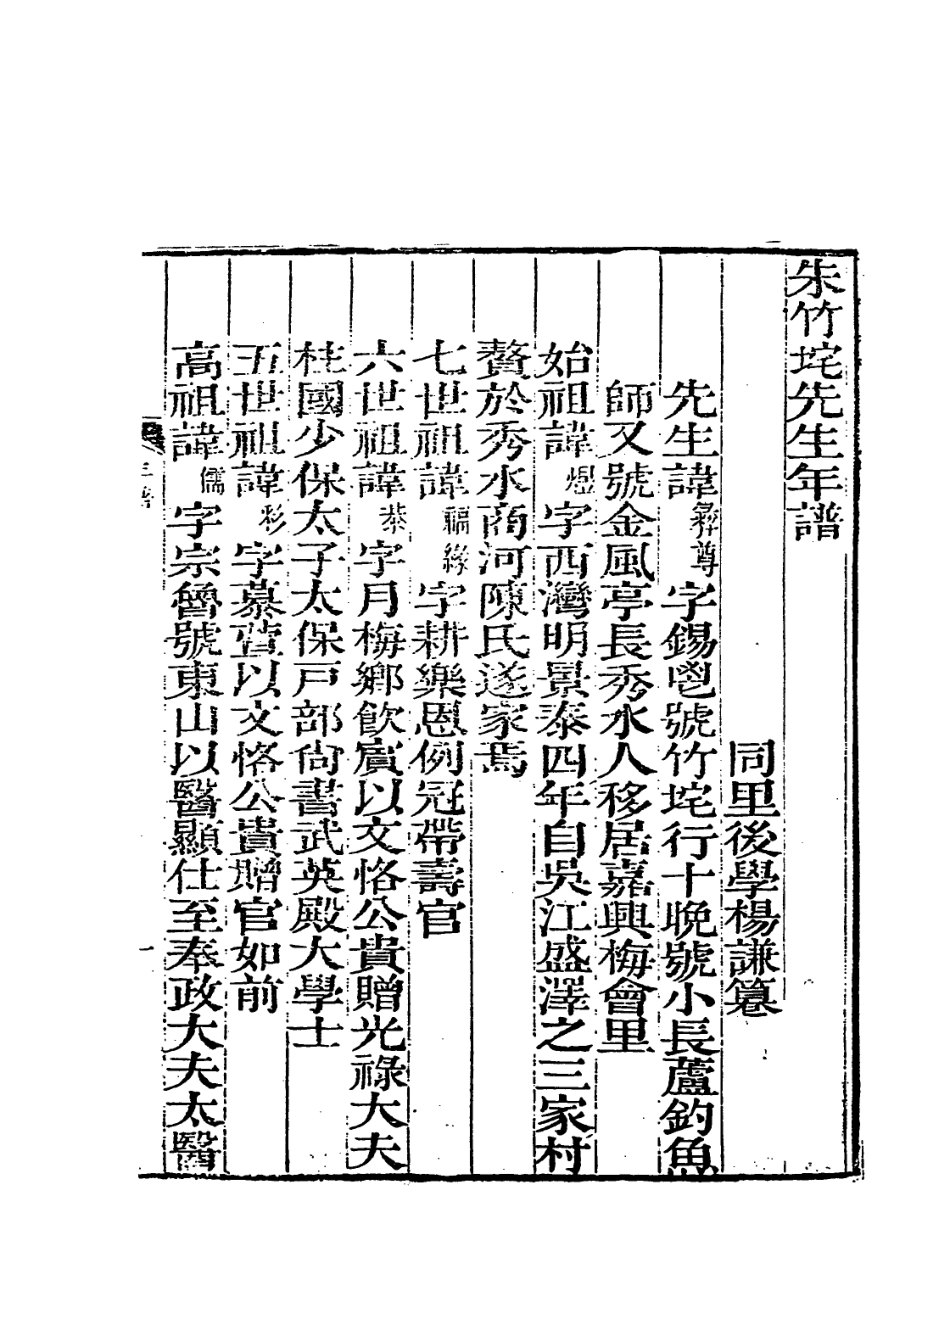 朱竹垞先生年譜
同里後學楊謙篹
先生諱彝尊字錫鬯號竹垞行十晚號小長蘆釣魚
師又號金風亭長秀水人移居嘉興梅會里
始祖諱煜字西灣明景泰四年自吳江盛澤之三家村
贅於秀水商河陳氏遂家焉
七世祖諱福緣字耕樂恩例冠帶壽官
六世祖諱恭字月梅鄉飲賓以文恪公貴贈光祿大夫
柱國少保太子太保戸部尙書武英殿大學士
五世祖諱彩字慕萱以文恪公貴贈官如前
高祖諱儒字宗魯號東山以醫顯仕至奉政大夫太醫
年譜
一